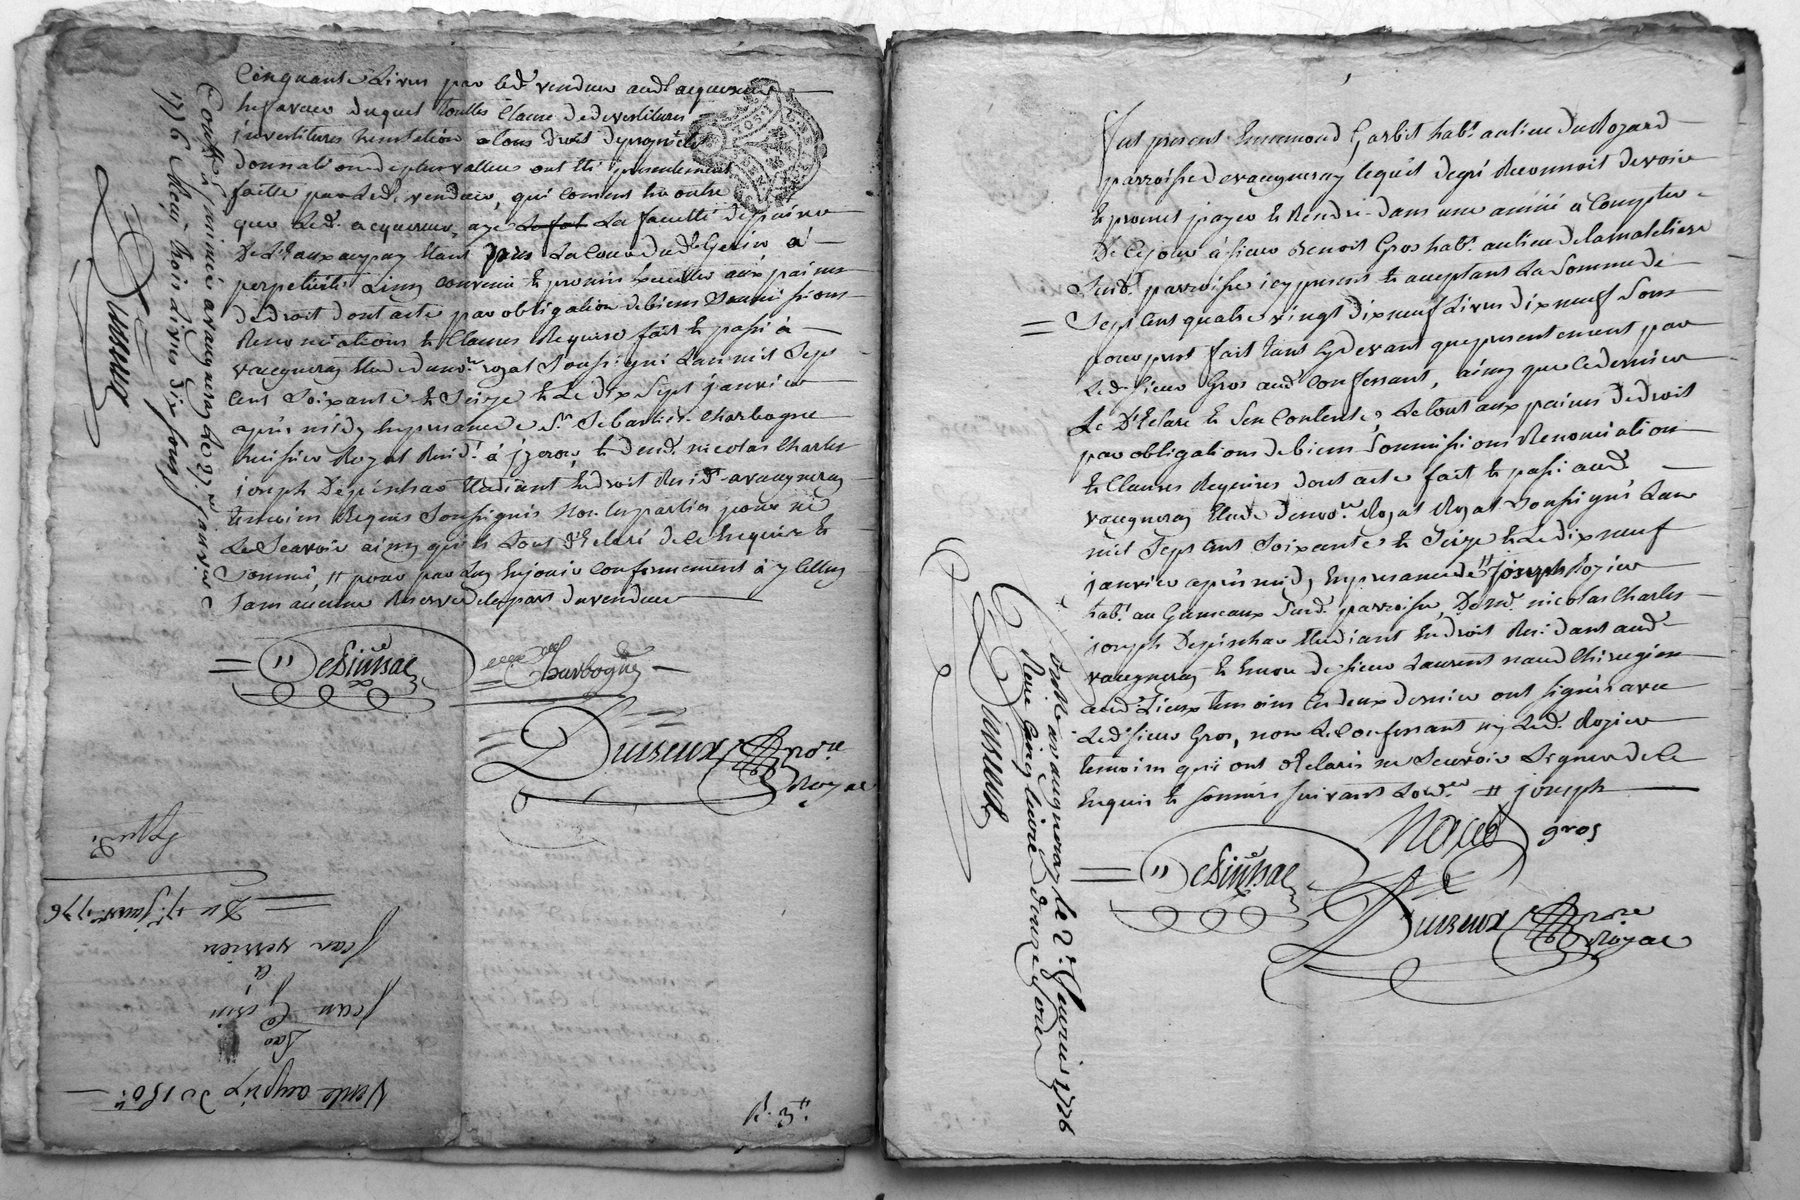 Cinquante Livres par led. vendeur aud. acquereur
au moyen duquel touttes Clause de devestitures
investitures tous droit de propriété
donnation de plus vallue ont été presentement
faitte par led. vendeur, qui consent en outre
que led. acquereur, aye la faculté
la Cour dud. Gerin à
perpetuité ainsy convenu et promis aux peines
de droit dont acte par obligation de biens soumissions
Renonciations et Clauses Requise fait et passé à
vaugneray Etude du nore. royal soussigné L'an mil sept
cent soixante et seize et Le dix sept janvier
après midy en presence de Sr. Sebastien Charbogne
huissier Royal Resid. à jzeron, et de nicolas Charles
joseph Depinhac Etudiant En droit Resid. a vaugneray
temoins Requis soussignés Non les parties pour ne
Le Scavoir ainsy qu'ils L'ont declaré de ce Enquis et
sommé, // pour par luy En jouir conformement à
sans aucune Reserve de la part du vendeur
Depinhac
Charbogne
Duiseux nore.
Royal
Conllé à vaugneray Le janvier
1776 Reçu trois Livres dix sous
Duiseux
Vente au prix de 150 #
Par
Jean Gerin
à
Jean verrieu
Du 17e. janvr. 1776
Exp. die
R. 3 #
Fut present Ennemond Garbit habt. au lieu du
parroisse de vaugneray lequel de gré Reconnoit devoir
et promet payer et Rendre dans une année a Compter
De Ce jour à sieur Benoit Gros habt. au lieu de la mateliere
susd. parroisse icy present et acceptant La somme de
sept cent quatre vingt dix neuf Livres dix neuf sous
pour pret fait tant cy devant que presentement par
Led. sieur Gros aud. confessant, ainsy que ce dernier
Le Declare et s'en Contente, Le tout aux peines de droit
par obligations de biens soumissions Renonciation
et Clauses Requises dont acte fait et passé aud.
vaugneray Etude du nore. Royal Royal soussigné L'an
mil sept cent soixante et seize et Le dix neuf
janvier après midy En presence de // joseph Rozier
habt. au Garneaux susd. parroisse, De nicolas Charles
joseph Depinhac Etudiant En droit Residant aud.
vaugneray et Encore de sieur Laurent naud Chirugien
aud. Lieux temoins Les deux dernier ont signés avec
Led. sieur Gros, non Le confessant ny Led. Rozier
temoin qui ont declarés ne Scavoir Signer de ce
Enquis et sommés suivant L'ord.ce // joseph
Naud gros
Depinhac
Duiseux nore.
Royal
Conllé à vaugneray le 2e. fevrier 1776
Reçu Cinq livres douze sous
Duiseux